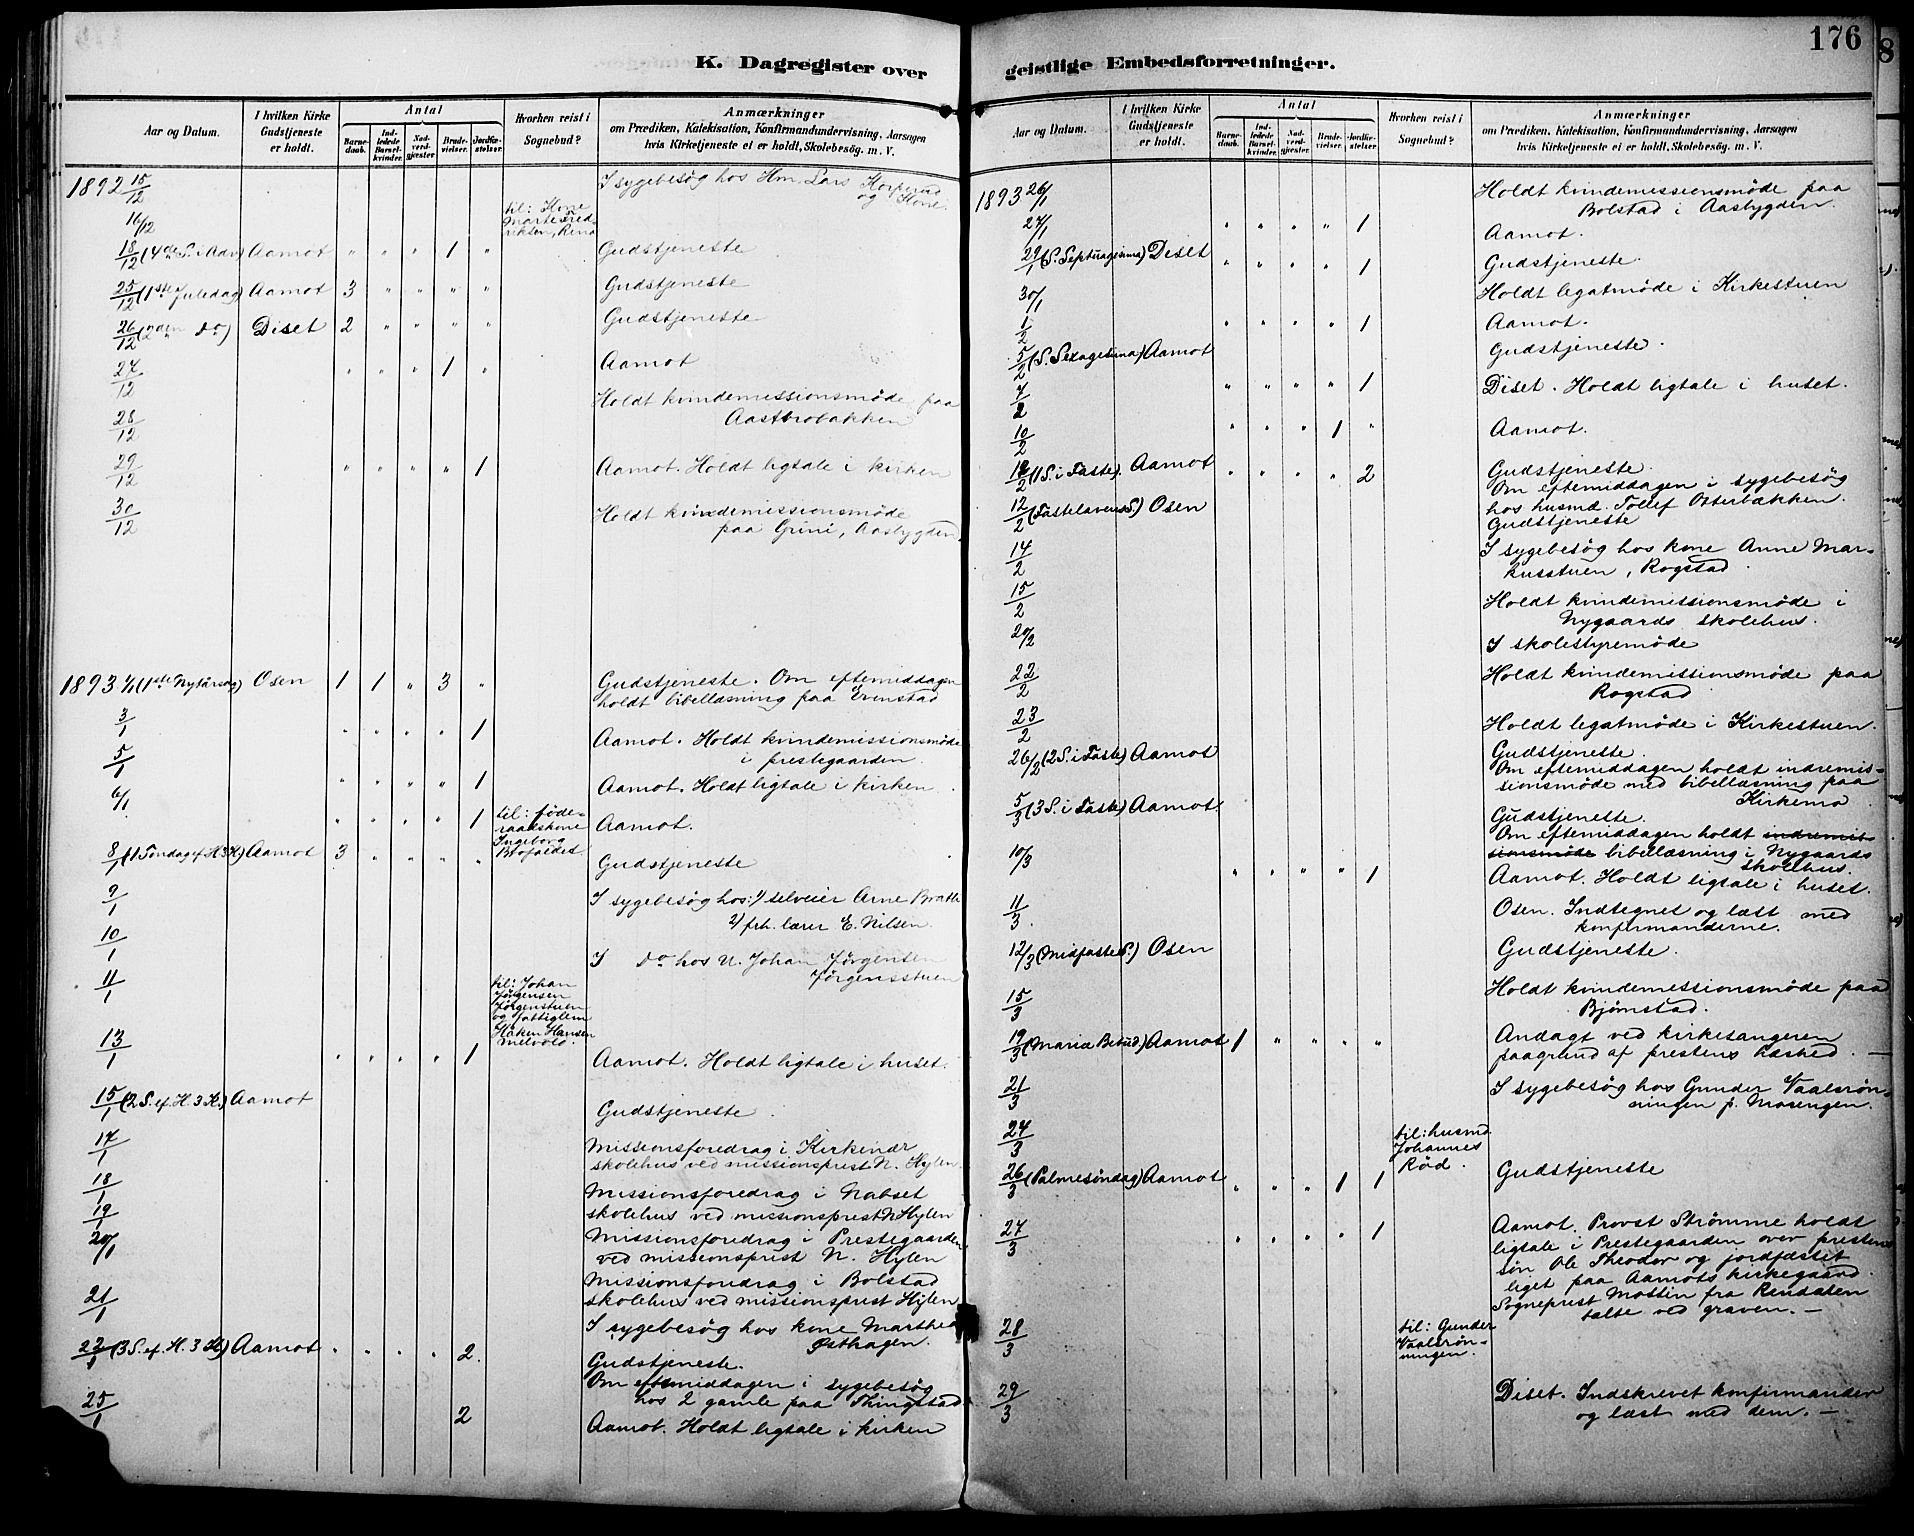 176
K. Dagregister over
Aar og Datum.
I hvilken Kirke Gudstjeneste er holdt.
Antal
Barnedaab.
Indledede Barselkvinder.
Nadverdgjester.
Brudevielser.
Jordfæstelser.
Hvorhen reist i Sognebud?
Anmærkninger
om Prædiken, Katekisation, Konfirmandundervisning, Aarsagen
hvis Kirketjeneste ei er holdt, Skolebesøg. m. V.
1892 15/12 I sygebesøg hos Hm. Lars
og Kone.
16/12 til: Kone
Marte Fred-
riksen, Rena
18/12 (4de S. i Adv) Aamot " " " 1 " Gudstjeneste
25/12 (1ste Juledag) Aamot 3 " " " " Gudstjeneste
26/12 (2den do) Diset 2 " " " " Gudstjeneste
27/12 " " " 1 " Aamot
28/12 Holdt kvindemissionsmøde paa
Aastbrobakken
29/12 " " " " 1 Aamot. Holdt ligtale i kirken
30/12 Holdt kvindemissionsmøde
paa Grini, Aasbygden.
1893 1/1 (1ste Nytårsdag) Osen 1 1 " 3 " Gudstjeneste. Om eftemiddagen
holdt bibellæsning paa Evenstad
3/1 " " " " 1 Aamot. Holdt kvindemissionsmøde
i prestegaarden.
5/1 " " " " 1 Aamot. Holdt ligtale i kirken.
6/1 " " " " 1 til: føde-
raadskone
Ingeborg
Aamot.
8/1 (1 Søndag ef. H 3 K) Aamot 3 " " " " Gudstjeneste
9/1 I sygebesøg hos: 1/ selveier Arne Bratli
2/ frh. lærer E. Nilsen.
10/1 I do hos U. Johan Jørgensen
Jørgensstuen
11/1 til: Johan
Jørgensen
Jørgenstuen
og fattiglem
Haken Hansen
Melvold.
13/1 " " " " 1 Aamot. Holdt ligtale i huset.
15/1 (2 S. ef. H. 3 K.) Aamot Gudstjeneste.
17/1 Missionsforedrag i Kirkenær
skolehus ved missionsprest N. Hylen.
18/1 Missionsforedrag i Nabset
19/1 skolehus ved missionsprest N Hylen
20/1 Missionsforedrag i Prestegaarden
ved missionsprest N. Hylen
Missionsforedrag i Bolstad
21/1 skolehus ved missionsprest Hylen
I sygebesøg hos kone Marthea
Østhagen.
22/1 (3 S. ef. H. 3 K) Aamot " " " " 2. Gudstjeneste.
Om eftemiddagen i sygebesøg
hos 2 gamle paa Thingstad
25/1 2 Aamot. Holdt ligtale i kirken
geistlige Embedsforretninger.
Aar og Datum.
I hvilken Kirke Gudstjeneste er holdt.
Antal
Barnedaab.
Indledede Barselkvinder.
Nadverdgjester.
Brudevielser.
Jordfæstelser.
Hvorhen reist i Sognebud?
Anmærkninger
om Prædiken, Katekisation, Konfirmandundervisning, Aarsagen
hvis Kirketjeneste ei er holdt, Skolebesøg. m. V.
1893 26/1 Holdt kvindemissionsmøde paa
Bolstad i Aasbygden.
27/1 " " " " 1 Aamot.
29/1 (S. Septuagesima) Diset " " " " 1 Gudstjeneste.
30/1 Holdt legatmøde i Kirkestuen
1/2 " " " " 1 Aamot.
5/2 (S. Sexagesima) Aamot Gudstjeneste.
7/2 " " " " 1 Diset. Holdt ligtale i huset.
10/2 " " " 1 " Aamot.
12/2 (1 S. i Faste). Aamot " " " " 2 Gudstjeneste.
Om eftemiddagen i sygebesøg
hos husmd. Tollef Otterbækken.
12/2 (Fastelavens S.) Osen Gudstjeneste
14/2 I sygebesøg hos kone Anne Mar-
kusstuen, Rogstad.
15/2 Holdt kvindemissionsmøde i
Nygaards skolehus.
20/2 I skolestyremøde
22/2 Holdt kvindemissionsmøde paa
Rogstad
23/2 Holdt legatmøde i Kirkestuen.
26/2 (2 S. i Faste) Aamot Gudstjeneste.
Om eftemiddagen holdt indremis-
sionsmøde med bibellæsning paa
Kirkemo.
5/3 (3 S. i Faste) Aamot. Gudstjeneste.
Om eftemiddagen holdt indremis-
sionsmøde bibellæsning i Nygaards
skolehus.
10/3 " " " " 1 Aamot. Holdt ligtale i huset.
11/3. Osen. Indtegnet og læst med
konfirmanderne.
12/3 (Midfaste S.) Osen Gudstjeneste.
15/3 Holdt kvindemissionsmøde paa
Bjørnstad.
19/3 (Mariæ Bebud.) Aamot 1 " " " " Andagt ved kirkesangeren
paagrund af prestens hæshed. —
21/3 I sygebesøg hos Gunder Vaalsrøn-
ningen p. Morengen.
24/3 til: husmd
Johannes
Rød.
26/3 (Palmesøndag) Aamot " " " 1 1 Gudstjeneste
27/3 " " " " 1 Aamot. Provst Strømme holdt
ligtale i Prestegaarden over prestens
søn Ole Theodor og jordfæstet
liget paa Aamots kirkegaard.
Sogneprest Mostin fra Rendalen
talte ved graven. —
28/3 til: Gunder
Vaalsrøn-
ningen.
29/3 Diset. Indskrevet konfirmander
og læst med dem. —